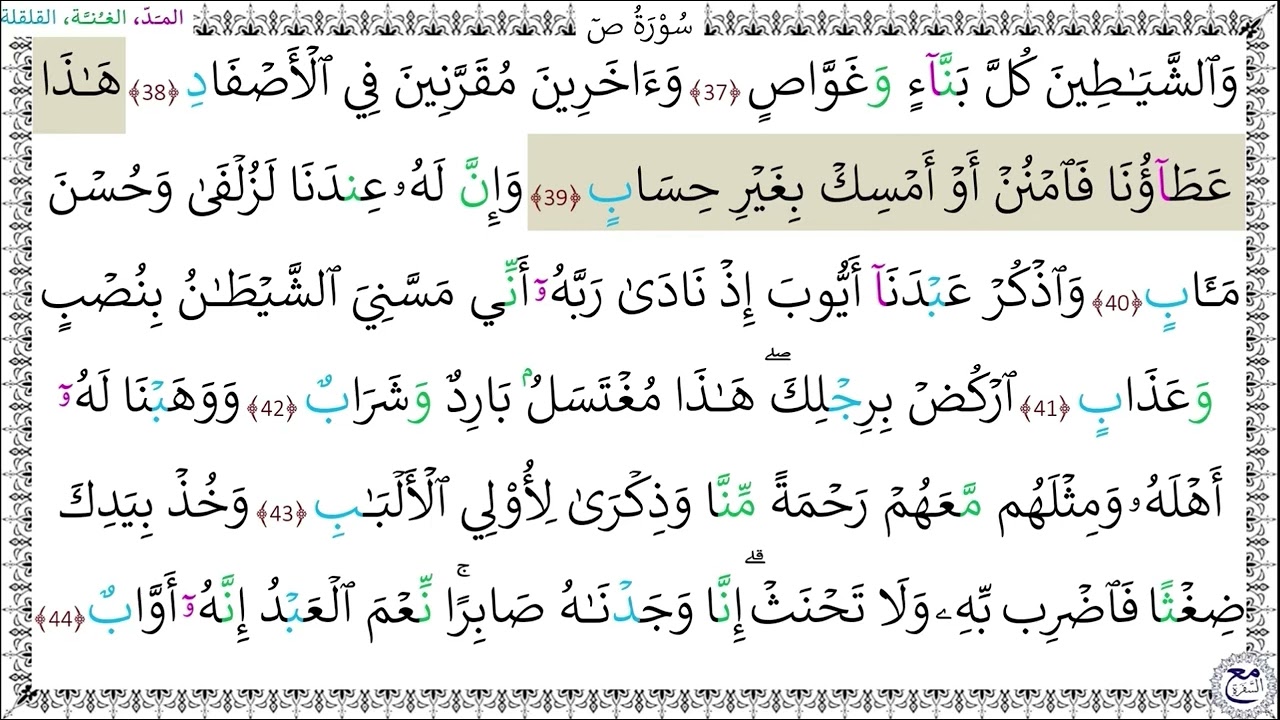 المـدّ، الغـُنـَّة، القلقلة
سُوْرَةُ صٓ
وَٱلشَّيَـٰطِينَ كُلَّ بَنَّآءٍ وَغَوَّاصٍ ﴿37﴾ وَءَاخَرِينَ مُقَرَّنِينَ فِي ٱلْأَصْفَادِ ﴿38﴾ هَـٰذَا
عَطَآؤُنَا فَٱمْنُنْ أَوْ أَمْسِكْ بِغَيْرِ حِسَابٍ ﴿39﴾ وَإِنَّ لَهُۥ عِندَنَا لَزُلْفَىٰ وَحُسْنَ
مَـَٔابٍ ﴿40﴾ وَٱذْكُرْ عَبْدَنَآ أَيُّوبَ إِذْ نَادَىٰ رَبَّهُۥٓ أَنِّي مَسَّنِيَ ٱلشَّيْطَـٰنُ بِنُصْبٍ
وَعَذَابٍ ﴿41﴾ ٱرْكُضْ بِرِجْلِكَ ۖ هَـٰذَا مُغْتَسَلٌۢ بَارِدٌ وَشَرَابٌ ﴿42﴾ وَوَهَبْنَا لَهُۥٓ
أَهْلَهُۥ وَمِثْلَهُم مَّعَهُمْ رَحْمَةً مِّنَّا وَذِكْرَىٰ لِأُوْلِي ٱلْأَلْبَـٰبِ ﴿43﴾ وَخُذْ بِيَدِكَ
ضِغْثًا فَٱضْرِب بِّهِۦ وَلَا تَحْنَثْ ۗ إِنَّا وَجَدْنَـٰهُ صَابِرًا ۚ نِّعْمَ ٱلْعَبْدُ إِنَّهُۥٓ أَوَّابٌ ﴿44﴾
مع
السَّفَرَة